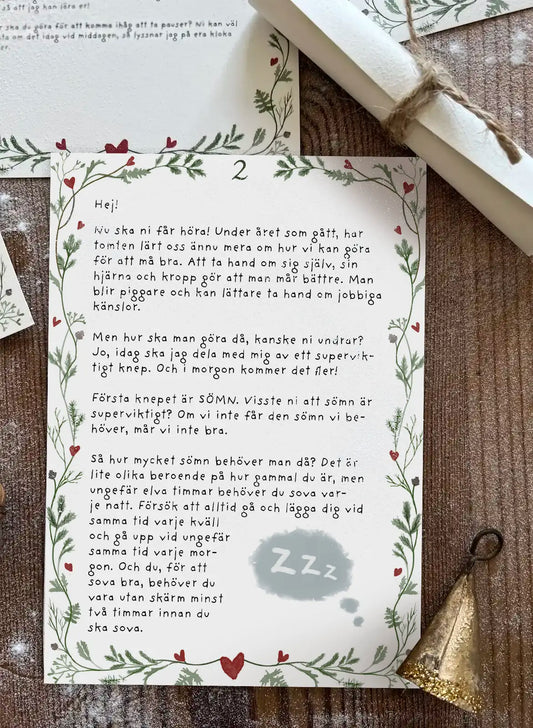 så att jag kan lära er!
ska du göra för att komma ihåg att ta pauser? Ni kan väl
om det idag vid middagen, så lyssnar jag på era kloka
2
Hej!
Nu ska ni får höra! Under året som gått, har
tomten lärt oss ännu mera om hur vi kan göra
för att må bra. Att ta hand om sig själv, sin
hjärna och kropp gör att man mår bättre. Man
blir piggare och kan lättare ta hand om jobbiga
känslor.
Men hur ska man göra då, kanske ni undrar?
Jo, idag ska jag dela med mig av ett supervik-
tigt knep. Och i morgon kommer det fler!
Första knepet är SÖMN. Visste ni att sömn är
superviktigt? Om vi inte får den sömn vi be-
höver, mår vi inte bra.
Så hur mycket sömn behöver man då? Det är
lite olika beroende på hur gammal du är, men
ungefär elva timmar behöver du sova var-
je natt. Försök att alltid gå och lägga dig vid
samma tid varje kväll
och gå upp vid ungefär
samma tid varje mor-
gon. Och du, för att
sova bra, behöver du
vara utan skärm minst
två timmar innan du
ska sova.
ZZZ